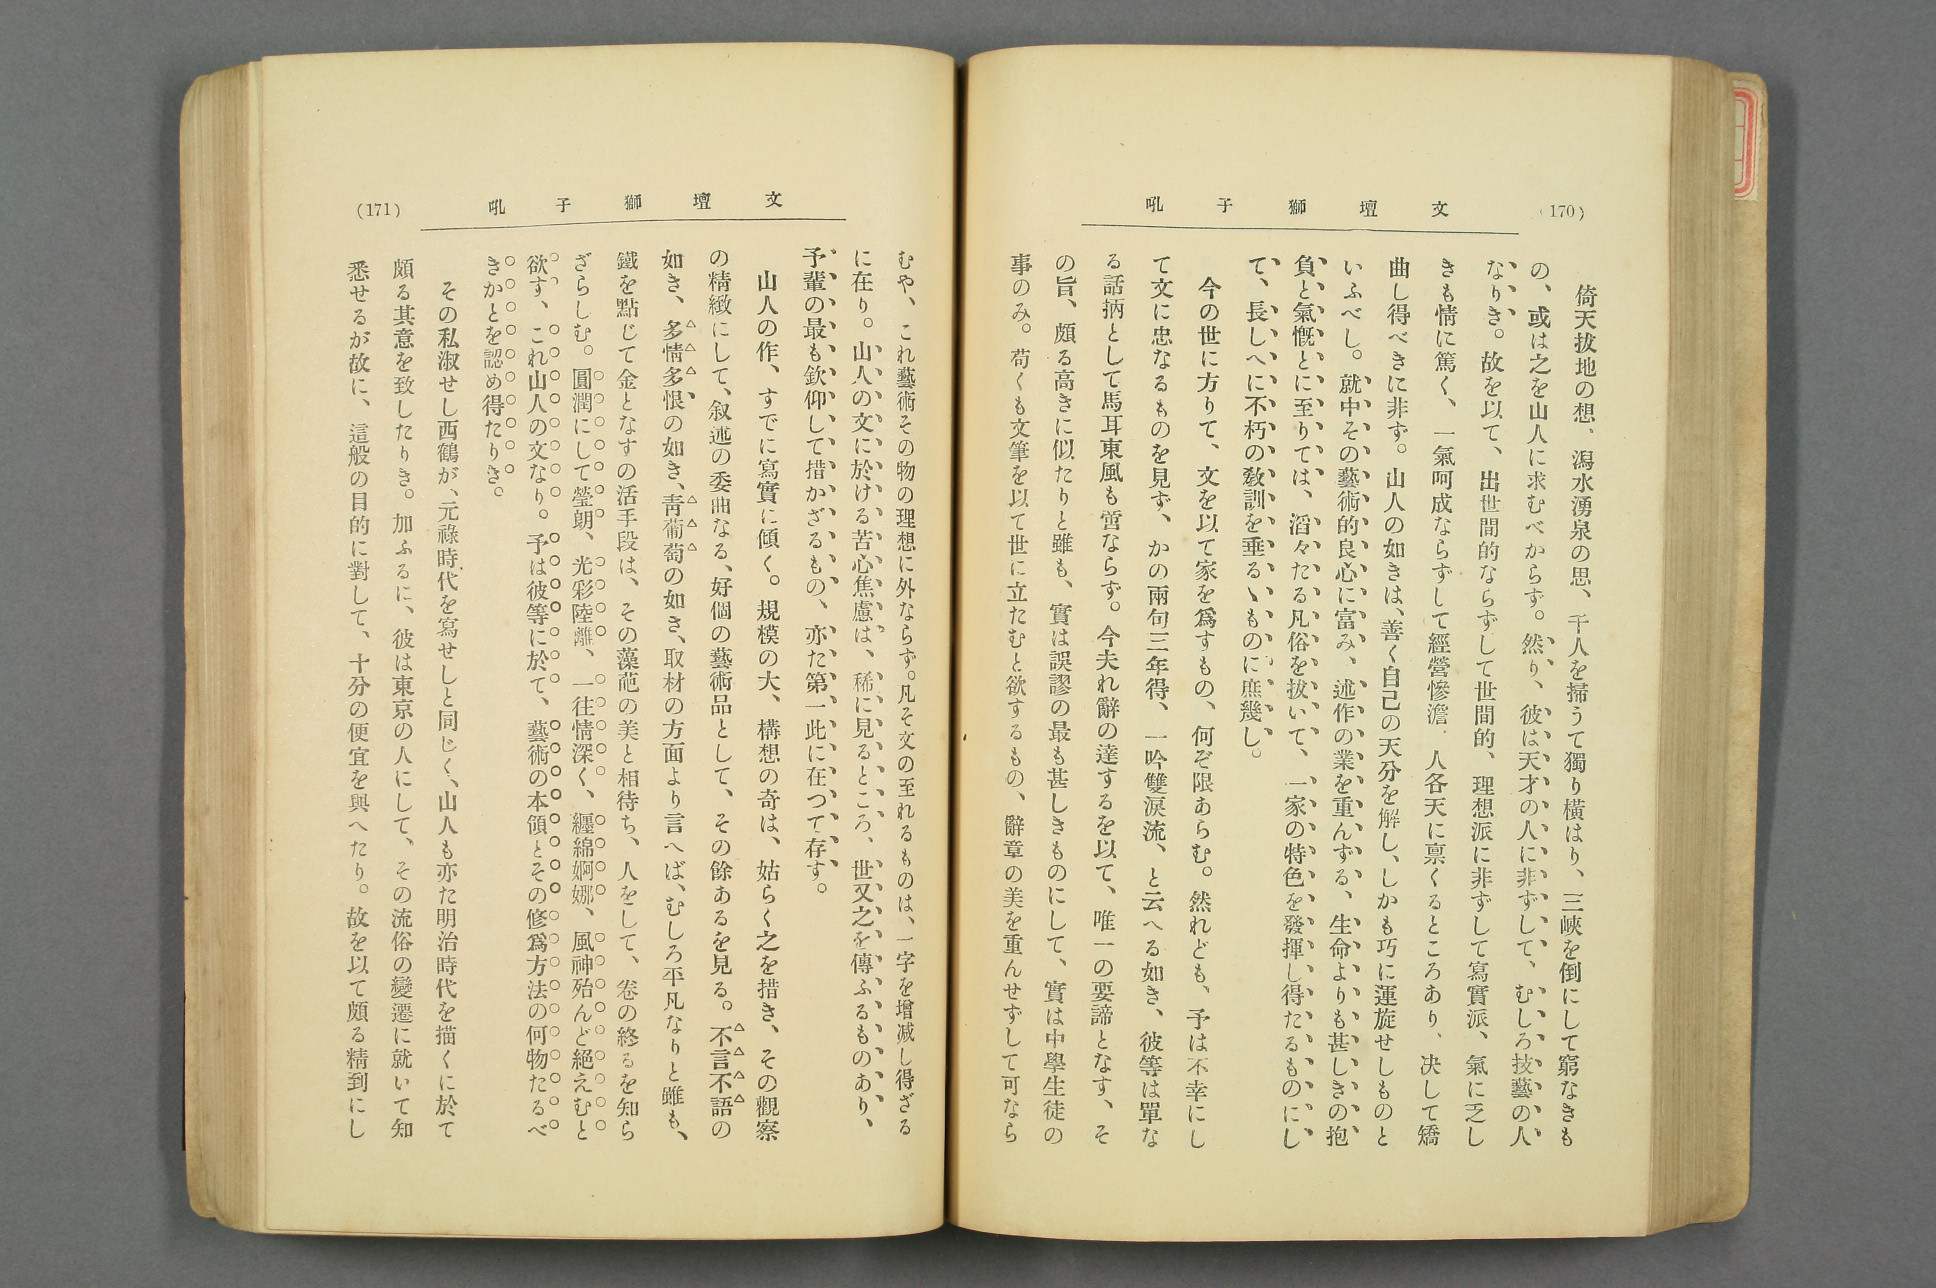 (170)
文壇獅子吼
倚天拔地の想、潟水湧泉の思、千人を掃うて獨り橫はり、三峽を倒にして窮なきも
の、或は之を山人に求むべからず。然り、彼は天才の人に非ずして、むしろ技藝の人
なりき。故を以て、出世間的ならずして世間的、理想派に非ずして寫實派、氣に乏し
きも情に篤く、一氣呵成ならずして經營慘澹、人各天に禀くるところあり、决して矯
曲し得べきに非ず。山人の如きは、善く自己の天分を解し、しかも巧に運旋せしものと
いふべし。就中その藝術的良心に富み、述作の業を重んずる、生命よりも甚しきの抱
負と氣慨とに至りては、滔々たる凡俗を拔いて、一家の特色を發揮し得たるものにし
て、長しへに不朽の敎訓を垂るゝものに庶幾し。
今の世に方りて、文を以て家を爲すもの、何ぞ限あらむ。然れども、予は不幸にし
て文に忠なるものを見ず、かの兩句三年得、一吟雙淚流、と云へる如き、彼等は單な
る話柄として馬耳東風も啻ならず。今夫れ辭の達するを以て、唯一の要諦となす、そ
の旨、頗る高きに似たりと雖も、實は誤謬の最も甚しきものにして、實は中學生徒の
事のみ。苟くも文筆を以て世に立たむと欲するもの、辭章の美を重んせずして可なら
文壇獅子吼
(171)
むや、これ藝術その物の理想に外ならず。凡そ文の至れるものは、一字を增减し得ざる
に在り。山人の文に於ける苦心焦慮は、稀に見るところ、世又之を傳ふるものあり、
予輩の最も欽仰して措かざるもの、亦た第一此に在つて存す。
山人の作、すでに寫實に傾く。規模の大、構想の奇は、姑らく之を措き、その觀察
の精緻にして、叙述の委曲なる、好個の藝術品として、その餘あるを見る。不言不語の
如き、多情多恨の如き、靑葡萄の如き、取材の方面より言へば、むしろ平凡なりと雖も、
鐵を點じて金となすの活手段は、その藻葩の美と相待ち、人をして、卷の終るを知ら
ざらしむ。圓潤にして瑩朗、光彩陸離、一往情深く、纒綿婀娜、風神殆んど絕えむと
欲す、これ山人の文なり。予は彼等に於て、藝術の本領とその修爲方法の何物たるべ
きかとを認め得たりき。
その私淑せし西鶴が、元祿時代を寫せしと同じく、山人も亦た明治時代を描くに於て
頗る其意を致したりき。加ふるに、彼は東京の人にして、その流俗の變遷に就いて知
悉せるが故に、這般の目的に對して、十分の便宜を與へたり。故を以て頗る精到にし